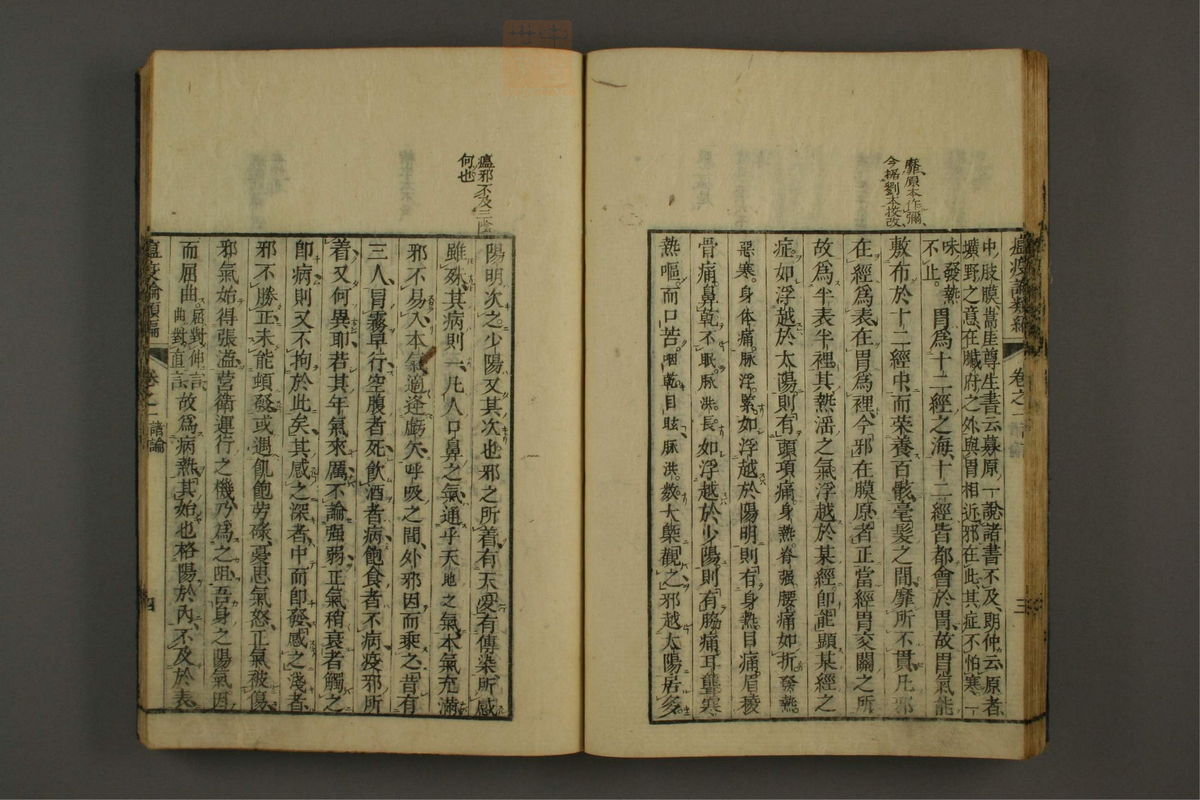 靡原本作彌
今據劉本挍改
瘟疫論類編
卷之一
諸論
三
中肢膜嵩崖尊生書云募原一說諸書不及朗仲云原者
壙野之意在臟府之外與胃相近邪在此其症不怕寒一
味發熱
不止胃爲十二經之海十二經皆都會於胃故胃氣能
敷布於十二經中而荣養百骸毫髪之間靡所不貫凡邪
在經爲表在胃爲裡今邪在膜原者正當經胃交關之所
故爲半表半裡其熱淫之氣浮越於某經即能顯某經之
症如浮越於太陽則有頭項痛身熱脊强腰痛如折發熱
惡寒身体痛脉浮緊如浮越於陽明則有身熱目痛眉稜
骨痛鼻乾不眠脉洪長如浮越於少陽則有脇痛耳聾寒
熱嘔而口苦咽乾目眩脉洪數大槩觀之邪越太陽居多
瘟邪不及三陰
何也
陽明次之少陽又其次也邪之所着有天受有傳染所感
雖殊其病則一凡人口鼻之氣通乎天地之氣本氣充滿
邪不易入本氣適逢虧欠呼吸之間外邪因而乘之昔有
三人冒霧早行空腹者死飲酒者病飽食者不病疫邪所
着又何異耶若其年氣來厲不論强弱正氣稍衰者觸之
即病則又不拘於此矣其感之深者中而即發感之淺者
邪不勝正未能頓發或遇飢飽労碌憂思氣怒正氣被傷
邪氣始得張溢營衛運行之機乃爲之阻吾身之陽氣因
而屈曲屈對伸言
曲對直言故爲病熱其始也格陽於內不及於表
瘟疫論類編
卷之一
諸論
四